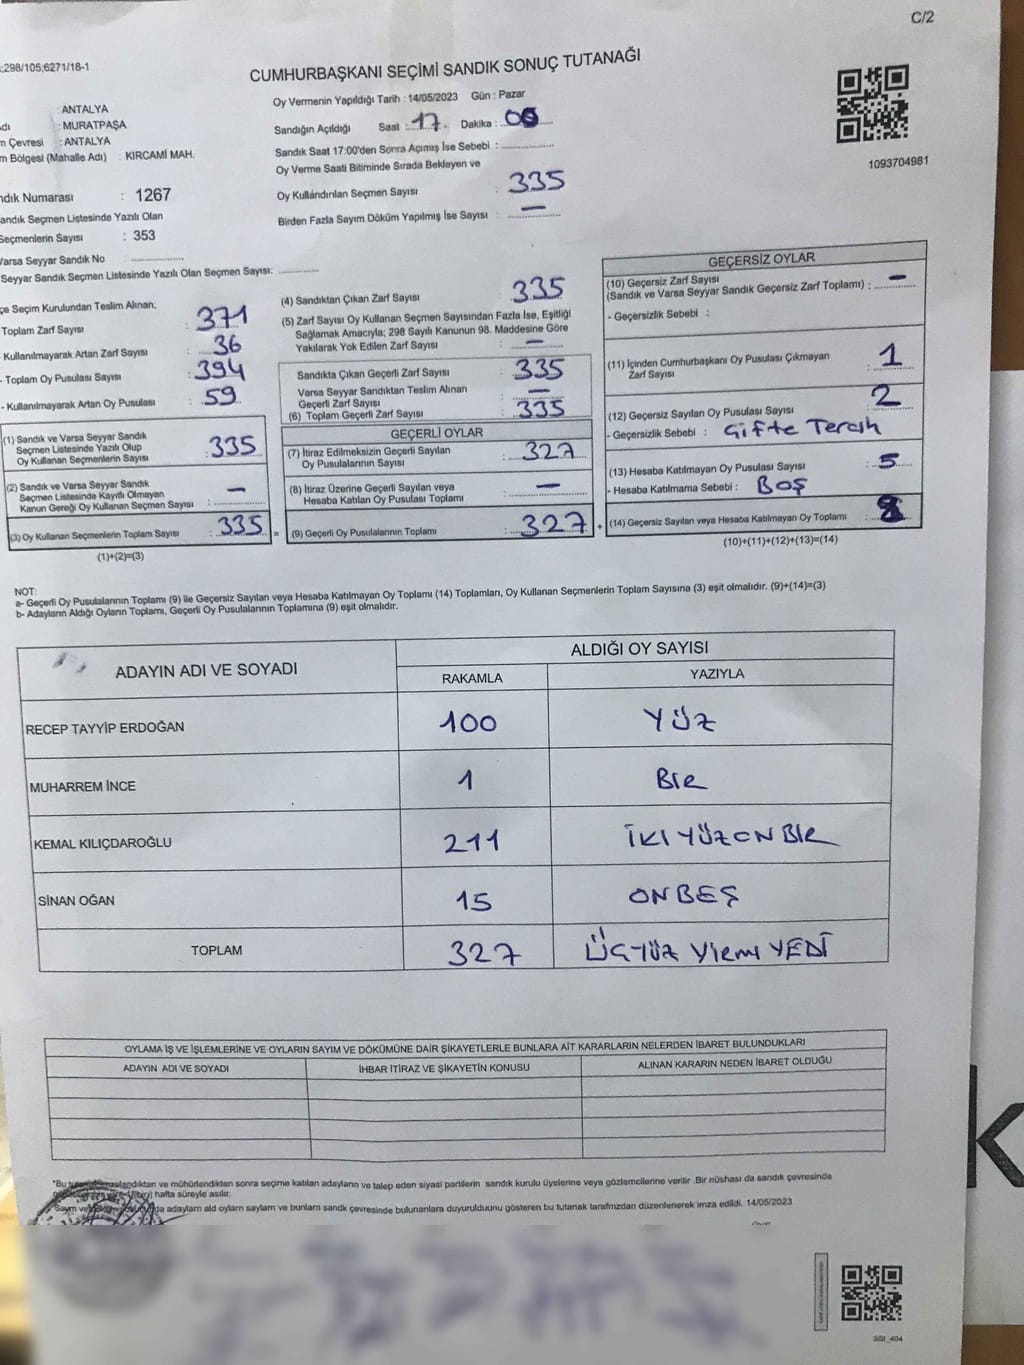 C/2
298/105;6271/18-1
CUMHURBAŞKANI SEÇİMİ SANDIK SONUÇ TUTANAĞI
: ANTALYA
: MURATPAŞA
Çevresi : ANTALYA
Bölgesi (Mahalle Adı) : KIRCAMİ MAH.
Numarası : 1267
Sandık Seçmen Listesinde Yazılı Olan
Seçmenlerin Sayısı : 353
Varsa Seyyar Sandık No : ..............
Seyyar Sandık Seçmen Listesinde Yazılı Olan Seçmen Sayısı: ...........
Oy Vermenin Yapıldığı Tarih : 14/05/2023 Gün : Pazar
Sandığın Açıldığı Saat : 17 Dakika : 00
Sandık Saat 17:00'den Sonra Açımış İse Sebebi : ..............
Oy Verme Saati Bitiminde Sırada Bekleyen ve
Oy Kullandırılan Seçmen Sayısı : 335
Birden Fazla Sayım Döküm Yapılmış İse Sayısı : —
1093704981
Seçim Kurulundan Teslim Alınan;
Toplam Zarf Sayısı : 371
Kullanılmayarak Artan Zarf Sayısı : 36
- Toplam Oy Pusulası Sayısı : 394
- Kullanılmayarak Artan Oy Pusulası : 59
(1) Sandık ve Varsa Seyyar Sandık
Seçmen Listesinde Yazılı Olup
Oy Kullanan Seçmenlerin Sayısı : 335
(2) Sandık ve Varsa Seyyar Sandık
Seçmen Listesinde Kayıtlı Olmayan
Kanun Gereği Oy Kullanan Seçmen Sayısı : —
(3) Oy Kullanan Seçmenlerin Toplam Sayısı : 335 =
(1)+(2)=(3)
(4) Sandıktan Çıkan Zarf Sayısı : 335
(5) Zarf Sayısı Oy Kullanan Seçmen Sayısından Fazla İse, Eşitliği
Sağlamak Amacıyla; 298 Sayılı Kanunun 98. Maddesine Göre
Yakılarak Yok Edilen Zarf Sayısı : —
Sandıkta Çıkan Geçerli Zarf Sayısı : 335
Varsa Seyyar Sandıktan Teslim Alınan
Geçerli Zarf Sayısı : —
(6) Toplam Geçerli Zarf Sayısı : 335
GEÇERLİ OYLAR
(7) İtiraz Edilmeksizin Geçerli Sayılan
Oy Pusulalarının Sayısı : 327
(8) İtiraz Üzerine Geçerli Sayılan veya
Hesaba Katılan Oy Pusulası Toplamı : —
(9) Geçerli Oy Pusulalarının Toplamı : 327 +
GEÇERSİZ OYLAR
(10) Geçersiz Zarf Sayısı
(Sandık ve Varsa Seyyar Sandık Geçersiz Zarf Toplamı) : —
- Geçersizlik Sebebi :
(11) İçinden Cumhurbaşkanı Oy Pusulası Çıkmayan
Zarf Sayısı : 1
(12) Geçersiz Sayılan Oy Pusulası Sayısı : 2
- Geçersizlik Sebebi : Çifte Tercih
(13) Hesaba Katılmayan Oy Pusulası Sayısı : 5
- Hesaba Katılmama Sebebi : BOŞ
(14) Geçersiz Sayılan veya Hesaba Katılmayan Oy Toplamı : 8
(10)+(11)+(12)+(13)=(14)
NOT:
a- Geçerli Oy Pusulalarının Toplamı (9) ile Geçersiz Sayılan veya Hesaba Katılmayan Oy Toplamı (14) Toplamları, Oy Kullanan Seçmenlerin Toplam Sayısına (3) eşit olmalıdır. (9)+(14)=(3)
b- Adayların Aldığı Oyların Toplamı, Geçerli Oy Pusulalarının Toplamına (9) eşit olmalıdır.
ADAYIN ADI VE SOYADI ALDIĞI OY SAYISI
RAKAMLA YAZIYLA
RECEP TAYYİP ERDOĞAN 100 YÜZ
MUHARREM İNCE 1 BİR
KEMAL KILIÇDAROĞLU 211 İKİYÜZONBİR
SİNAN OĞAN 15 ONBEŞ
TOPLAM 327 ÜÇYÜZ YİRMİ YEDİ
OYLAMA İŞ VE İŞLEMLERİNE VE OYLARIN SAYIM VE DÖKÜMÜNE DAİR ŞİKAYETLERLE BUNLARA AİT KARARLARIN NELERDEN İBARET BULUNDUKLARI
ADAYIN ADI VE SOYADI İHBAR İTİRAZ VE ŞİKAYETİN KONUSU ALINAN KARARIN NEDEN İBARET OLDUĞU
*Bu imzalandıktan ve mühürlendikten sonra seçime katılan adayların ve talep eden siyasi partilerin sandık kurulu üyelerine veya gözlemcilerine verilir. Bir nüshası da sandık çevresinde
hafta süreyle asılır.
da adayların ald oyların sayları ve bunların sandk çevresinde bulunanlara duyurulduunu gösteren bu tutanak tarafımzdan düzenlenerek imza edildi. 14/05/2023
SSI_404
k